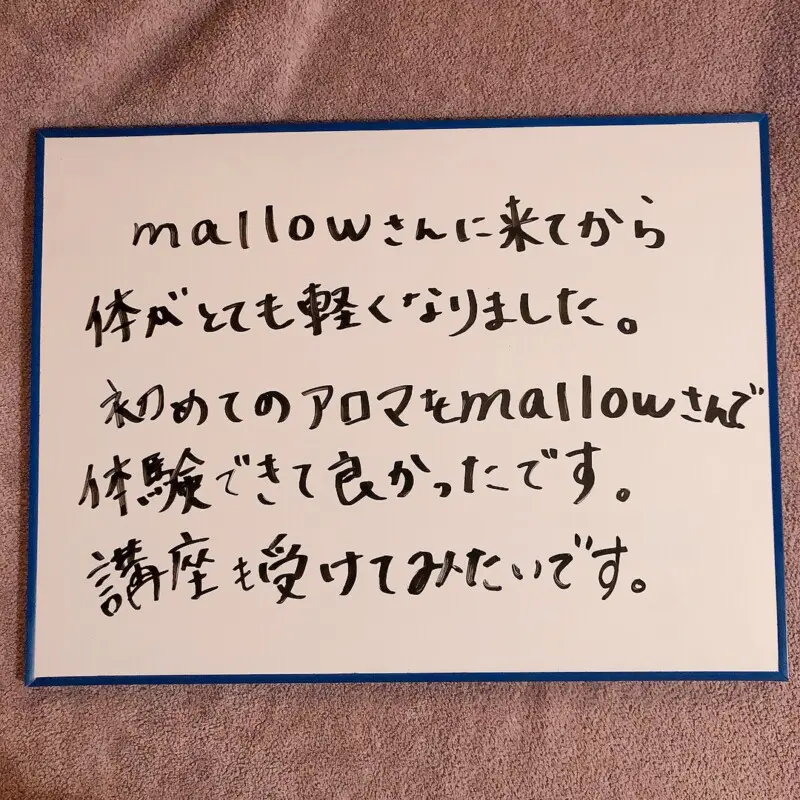 mallowさんに来てから
体がとても軽くなりました。
初めてのアロマをmallowさんで
体験できて良かったです。
講座も受けてみたいです。